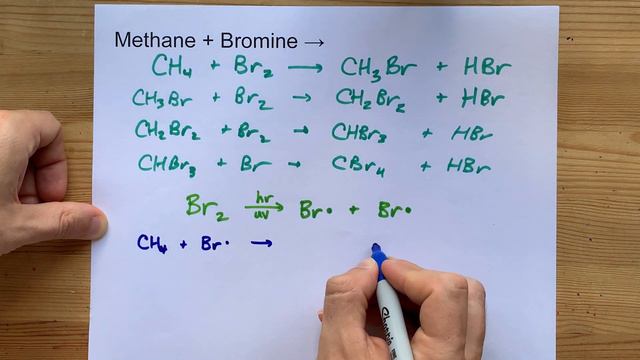 Methane + Bromine →
CH₄ + Br₂ → CH₃Br + HBr
CH₃Br + Br₂ → CH₂Br₂ + HBr
CH₂Br₂ + Br₂ → CHBr₃ + HBr
CHBr₃ + Br → CBr₄ + HBr
Br₂ hr uv → Br• + Br•
CH₄ + Br• →
Sharpie